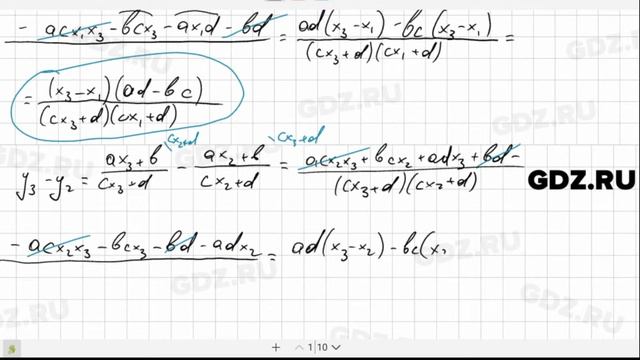 - acx₁x₃ - bcx₃ - ax₁d - bd = ad(x₃-x₁) - bc(x₃-x₁) / (cx₃+d)(cx₁+d) =
= (x₃-x₁)(ad-bc) / (cx₃+d)(cx₁+d)
cx₂+d cx₃+d
y₃-y₂ = ax₃+b / cx₃+d - ax₂+b / cx₂+d = acx₂x₃+bcx₂+adx₃+bd- / (cx₃+d)(cx₂+d)
GDZ.RU
-acx₂x₃-bcx₃-bd-adx₂ = ad(x₃-x₂)-bc(x,
+ 1|10